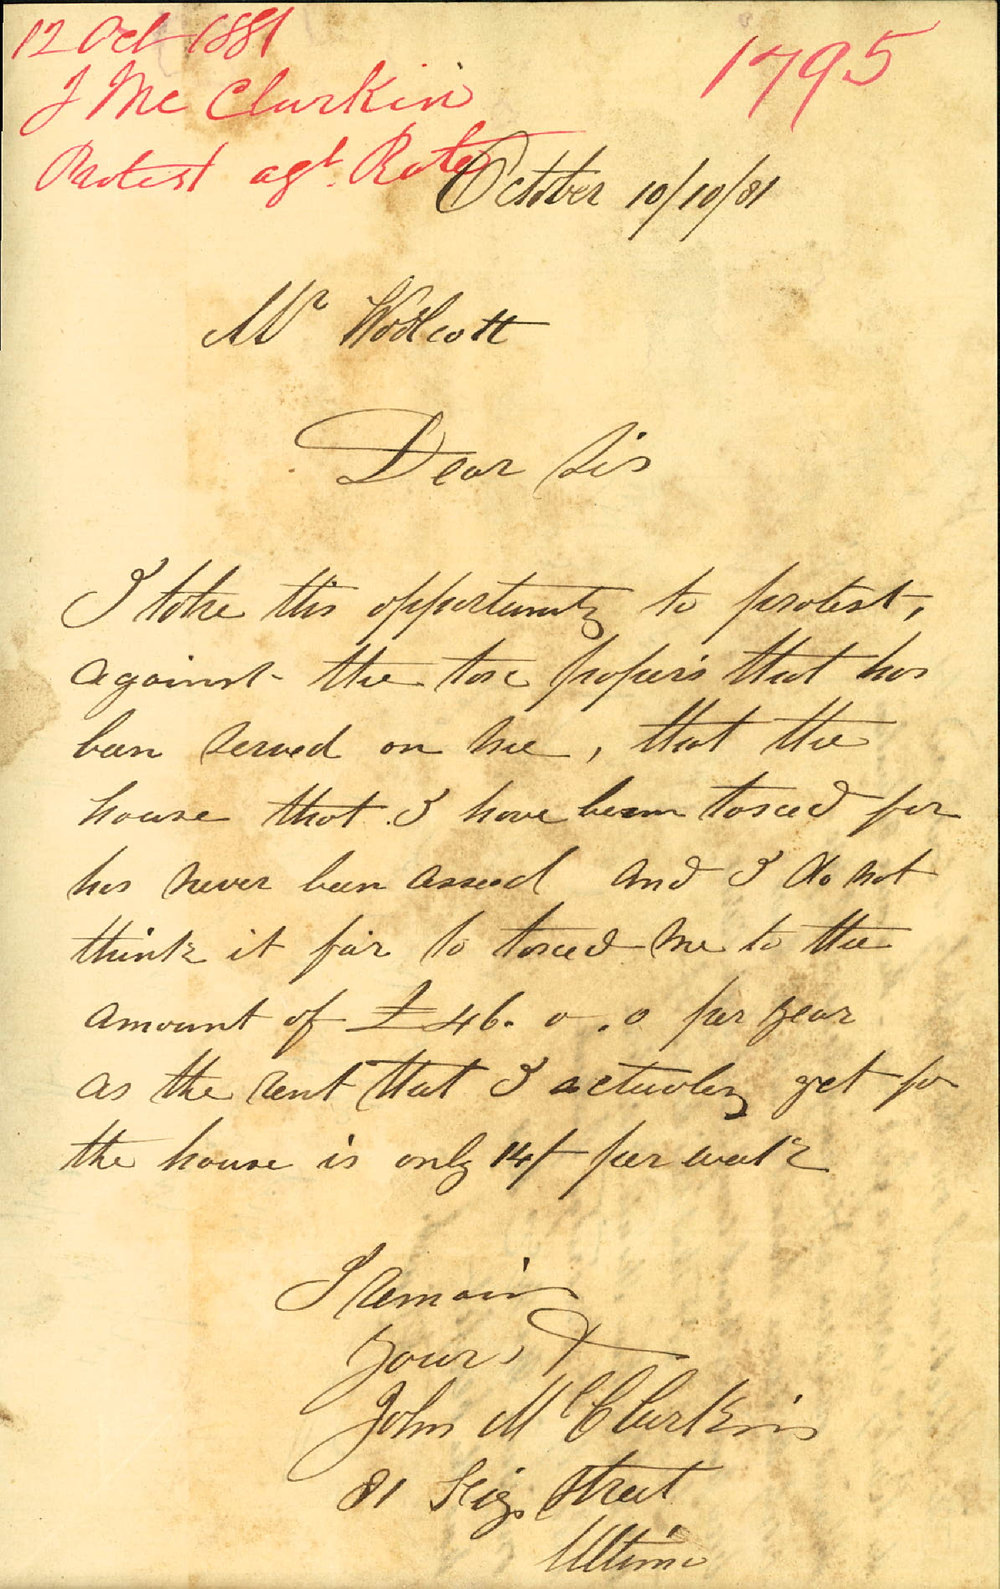 12 Oct 1881
J Mc Clurkin
Protest agt. Rate
1795
October 10/10/81
Mr Woolcott
Dear Sir
I take this opportunity to protest,
against the tax papers that has
been served on me, that the
house that I have been taxced for
has never been assesed and I do not
think it fair to taxced me to the
amount of £46. 0. 0 per year
as the rent that I actualey get for
the house is only 14/ per week
I remain
Yours &
John McClurkin
81 Street
Ultimo